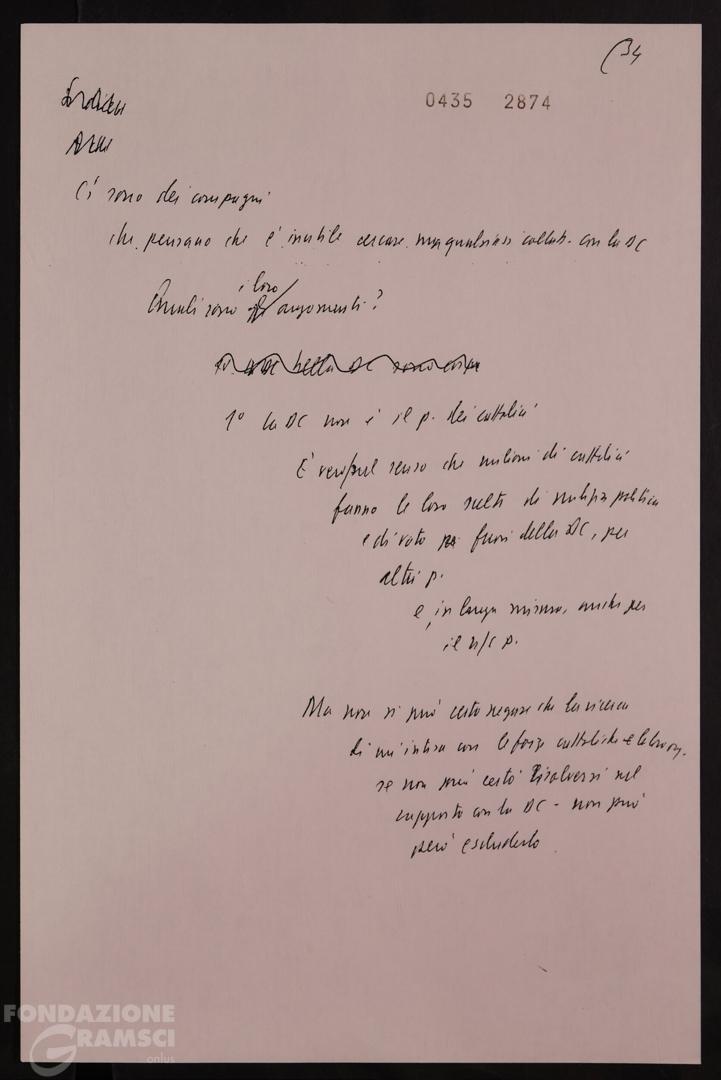 (34
0435 2874
Ci sono dei compagni
che pensano che è inutile cercare una qualsiasi collab. con la DC
i loro
Quali sono argomenti?
1° la DC non è il p. dei cattolici
È vero nel senso che milioni di cattolici
fanno le loro scelte di milizia politica
e di voto fuori della DC, per
altri p.
e, in larga misura, anche per
il n/ p.
Ma non si può certo negare che la ricerca
di un'intesa con le forze cattoliche e le loro org.
se non può certo risolversi nel
rapporto con la DC - non può
però escluderlo
FONDAZIONE
GRAMSCI
onlus